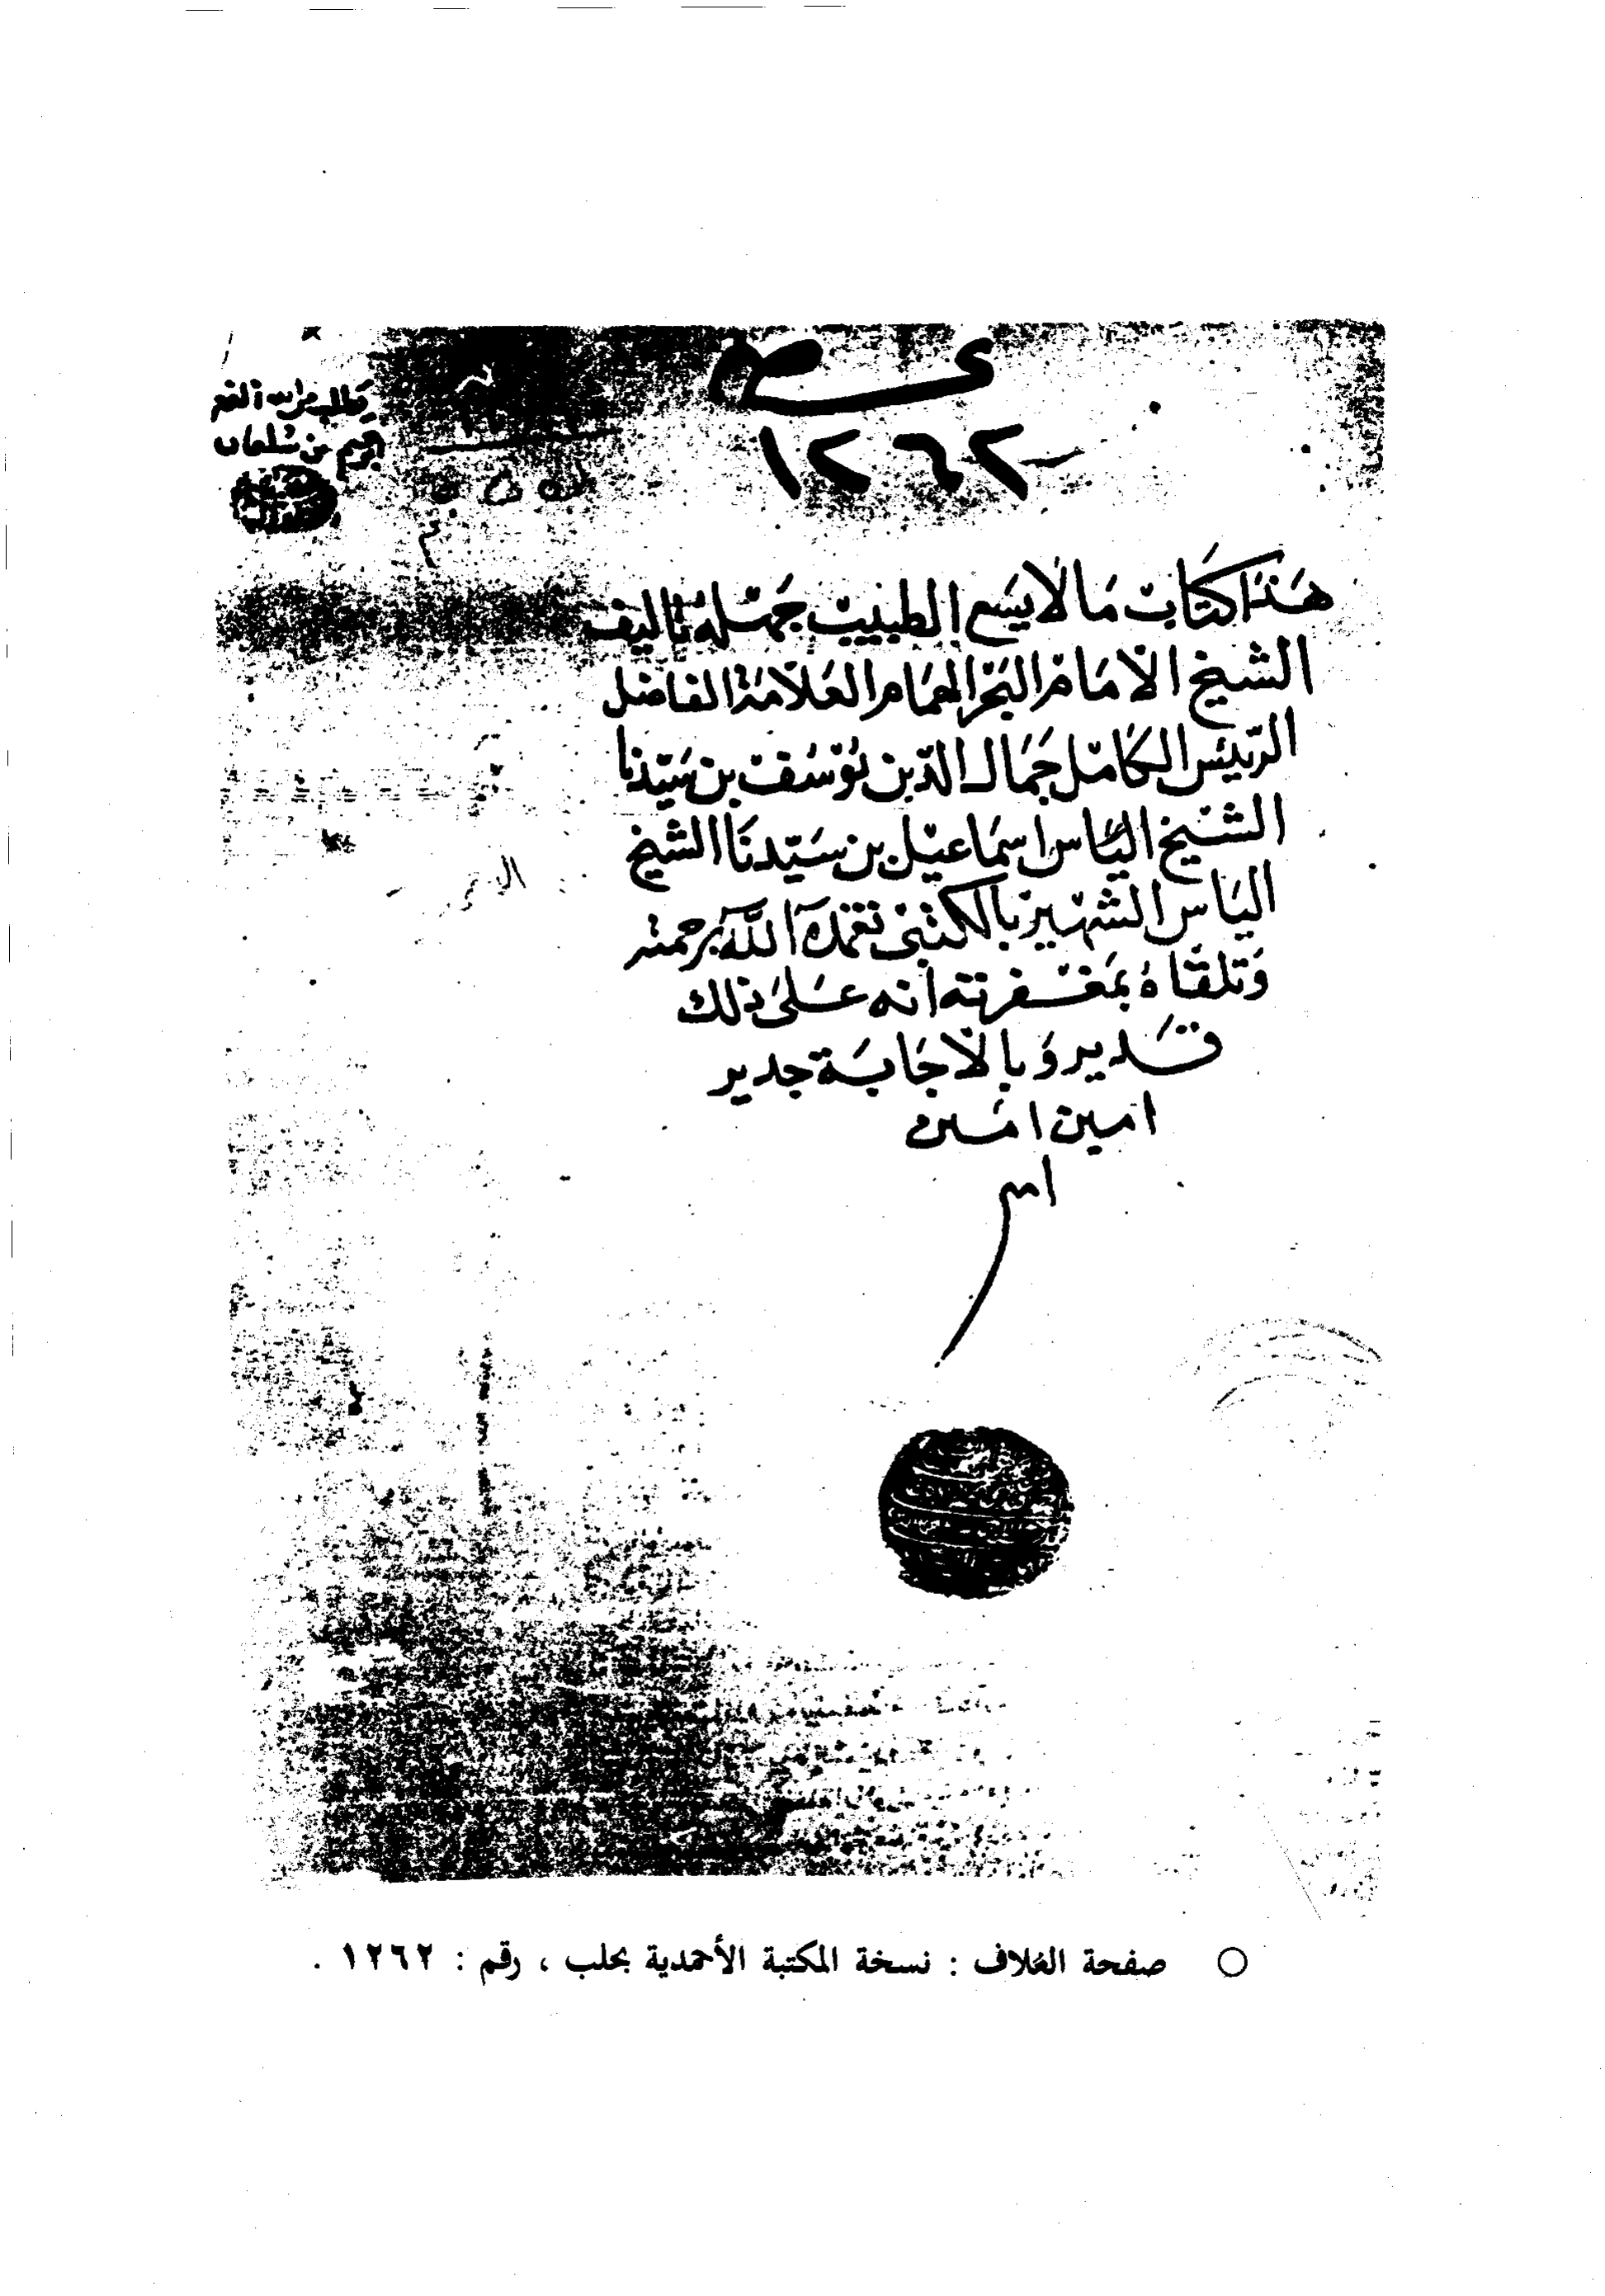 عـــم
١٢٦٢
هَذا كتَاب مَا لا يسَع الطبيب جَهله تاليف
الشيخ الامَام البَحر الهمَام العَلامَة الفاضل
الرّئيس الكَامل جَمَال الدّين يوسُف بن سَيّدنا
الشيخ اليَاس اسمَاعيل بن سَيّدنَا الشيخ
اليَاس الشهير بالكتبي تغمدَه اللَّه برحمته
وَتلقاهُ بمَغفرته انه عَلى ذلك
قَدير وَبالاجَابَة جدير
امين امين
امين
○ صفحة الغلاف : نسخة المكتبة الأحمدية بحلب ، رقم : ١٢٦٢ .